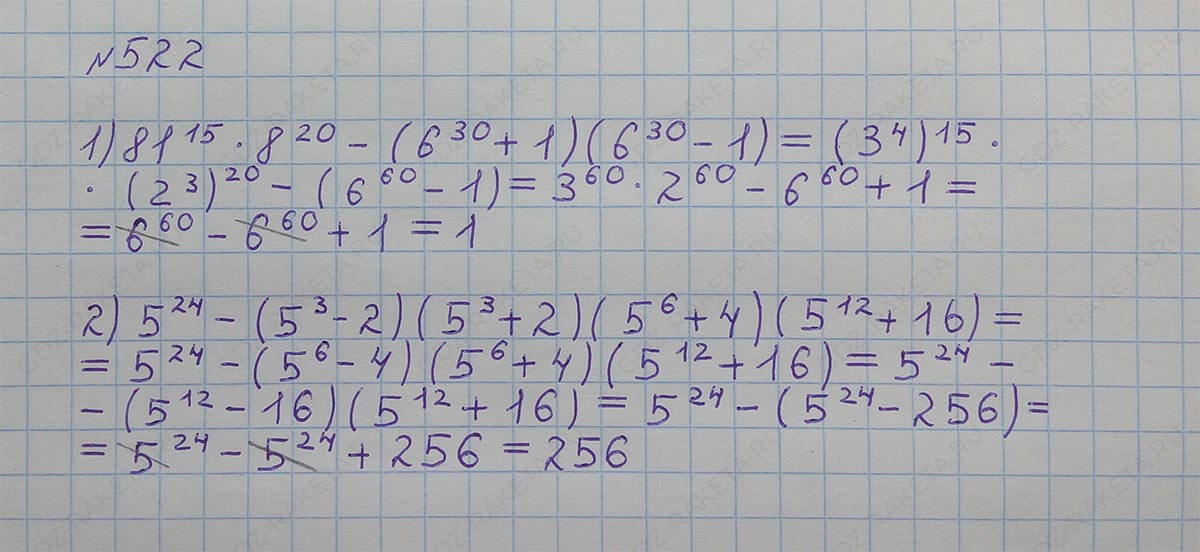 №522
1) 81¹⁵ · 8²⁰ - (6³⁰ + 1)(6³⁰ - 1) = (3⁴)¹⁵ ·
· (2³)²⁰ - (6⁶⁰ - 1) = 3⁶⁰ · 2⁶⁰ - 6⁶⁰ + 1 =
= 6⁶⁰ - 6⁶⁰ + 1 = 1
2) 5²⁴ - (5³ - 2)(5³ + 2)(5⁶ + 4)(5¹² + 16) =
= 5²⁴ - (5⁶ - 4)(5⁶ + 4)(5¹² + 16) = 5²⁴ -
- (5¹² - 16)(5¹² + 16) = 5²⁴ - (5²⁴ - 256) =
= 5²⁴ - 5²⁴ + 256 = 256
GDZ-RAKETA.RU